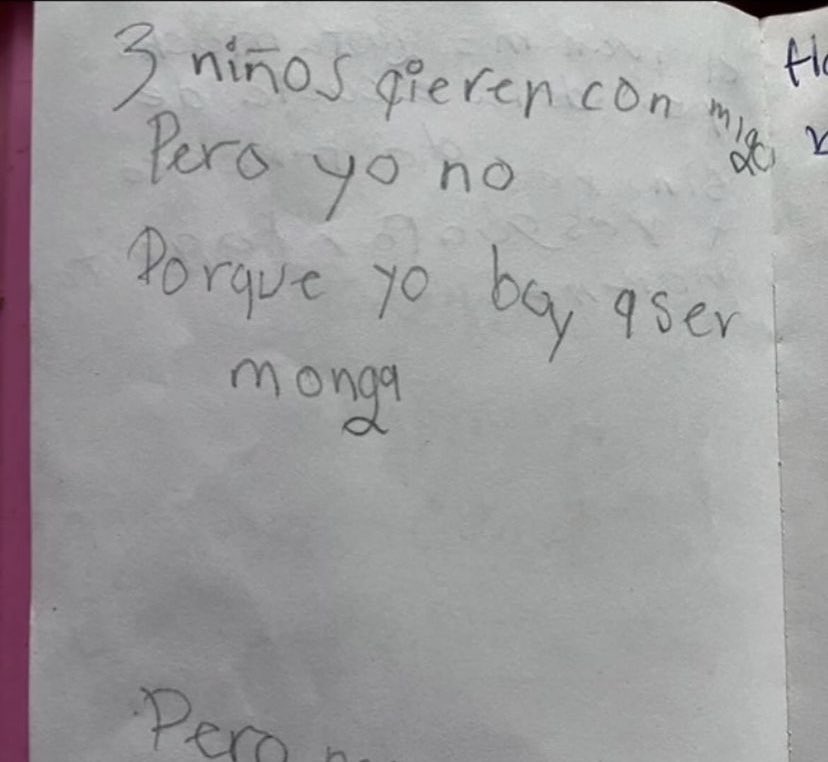 3 niños qieren con migo
Pero yo no
Porque yo boy aser
monga
Pero